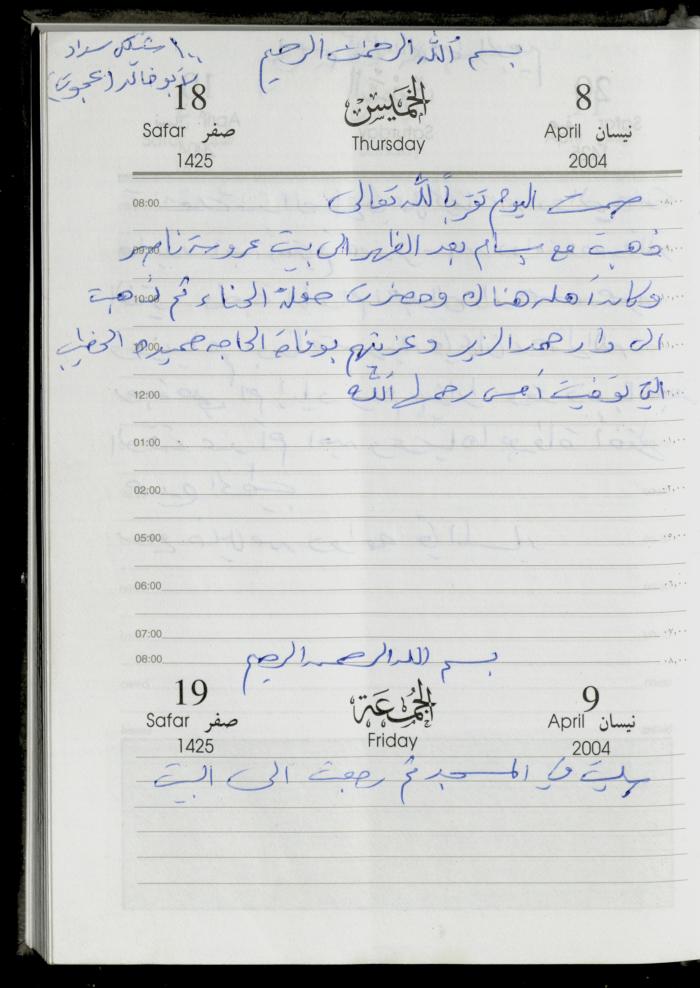 ١٠٠ شيكل سداد
لأبو خالد (عجوة)
بسم الله الرحمن الرحيم
18 الخميس 8
Safar صفر Thursday April نيسان
1425 2004
صمت اليوم تقرباً لله تعالى
08:00 ٠٨,٠٠
ذهبت مع بسام بعد الظهر الى بيت عروسة ناصر
09:00
وكان أهله هناك وحضرت حفلة الحناء ثم ذهبت
10:00
الى دار حمد الزير وعزيتهم بوفاة الحاجه حميده الخطيب
11:00 ١١,٠٠
التي توفيت أمس رحمها الله
12:00
01:00 ٠١,٠٠
02:00 ٠٢,٠٠
05:00 ٠٥,٠٠
06:00 ٠٦,٠٠
07:00 ٠٧,٠٠
08:00 ٠٨,٠٠
بسم الله الرحمن الرحيم
19 الجمعة 9
Safar صفر Friday April نيسان
1425 2004
صليت في المسجد ثم رجعت الى البيت